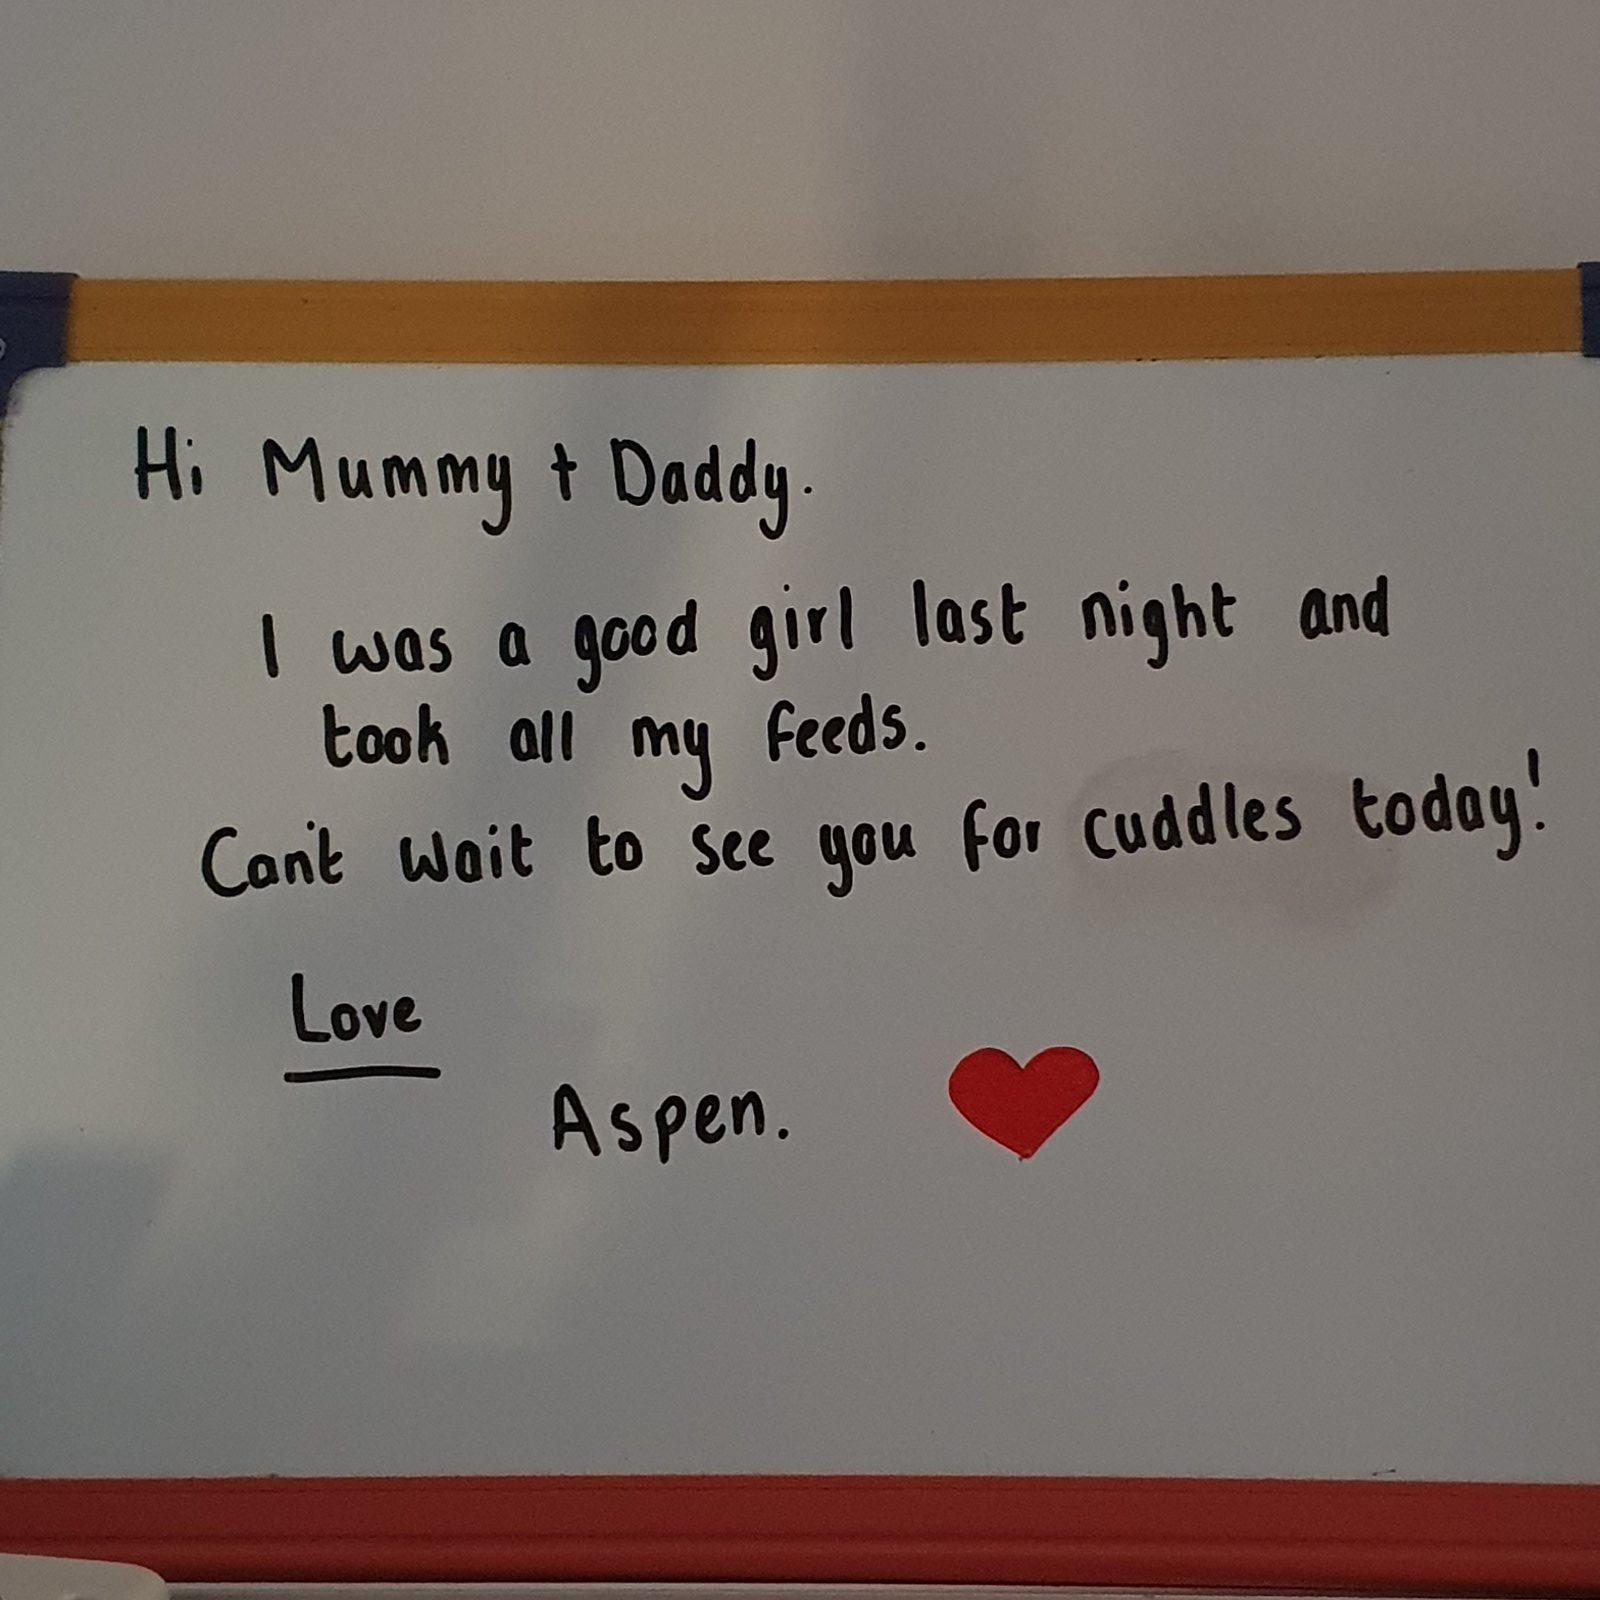 Hi Mummy + Daddy.
I was a good girl last night and
took all my feeds.
Can't wait to see you for cuddles today!
Love
Aspen.